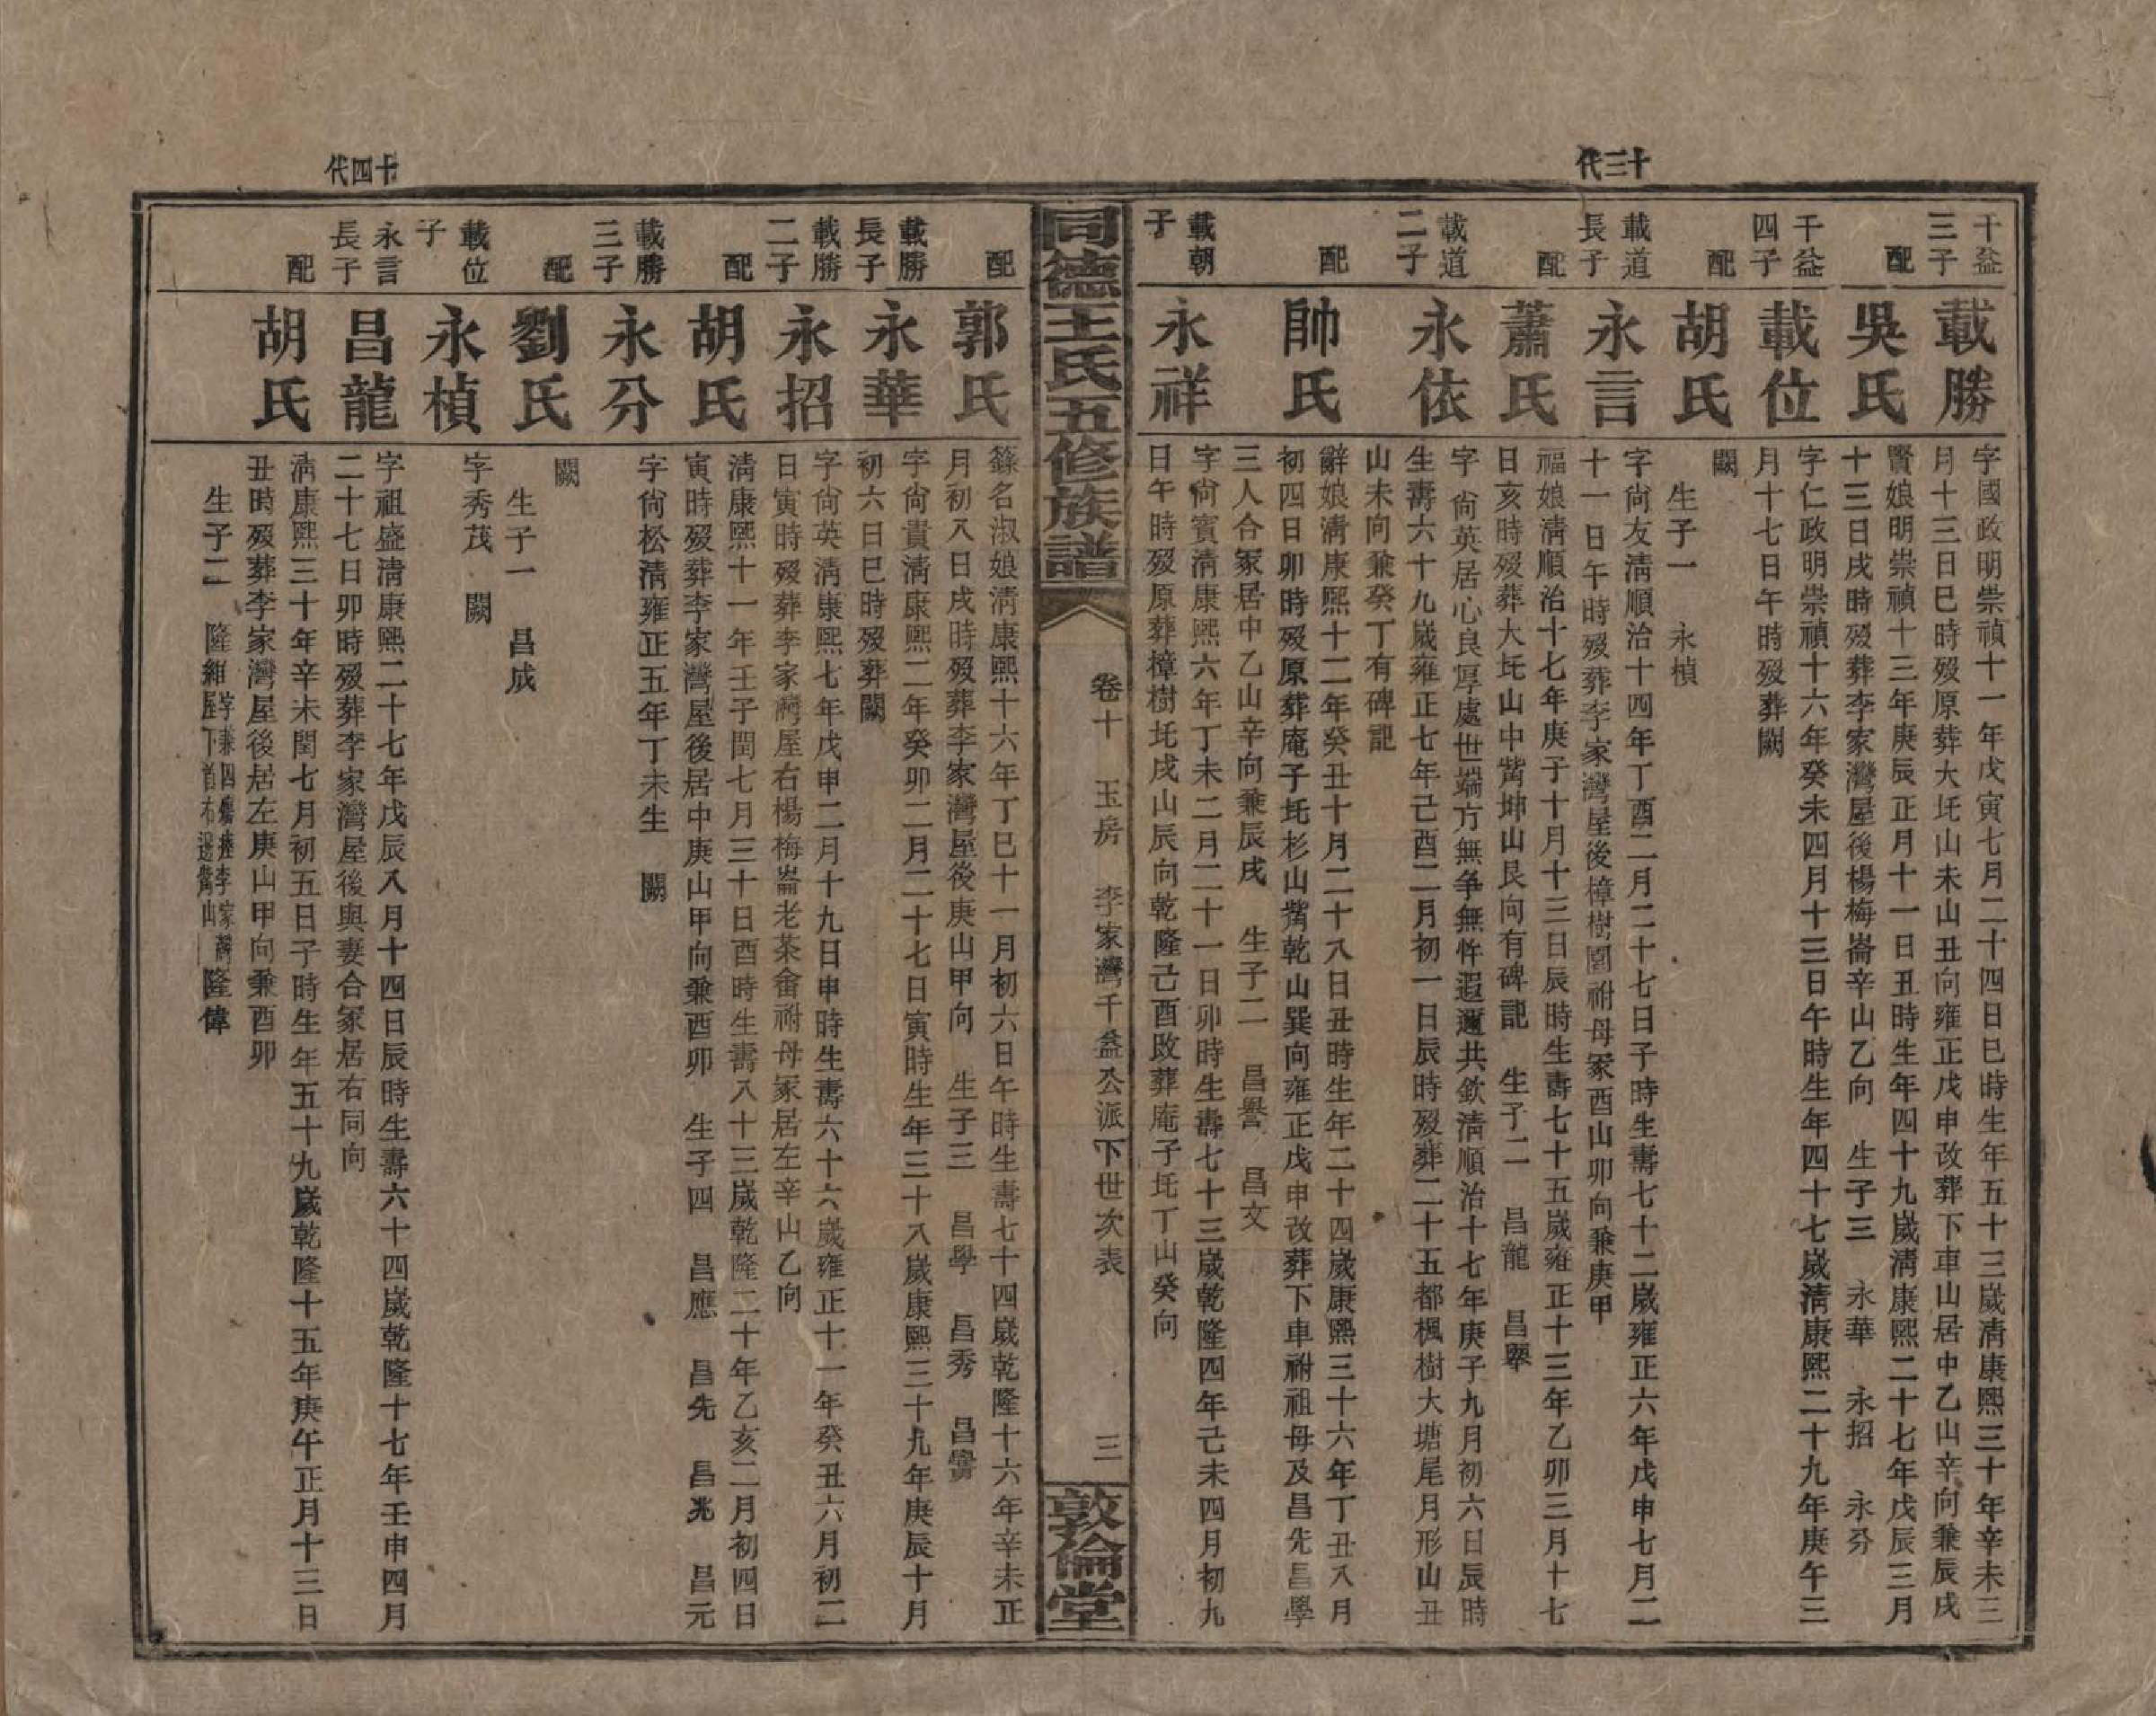 十三代
千益三子
載勝
字國政明崇禎十一年戊寅七月二十四日巳時生年五十三歲清康熙三十年辛未三
月十三日巳時歿原葬大坵山未山丑向雍正戊申改葬下車山居中乙山辛向兼辰戌
配
吳氏
賢娘明崇禎十三年庚辰正月十一日丑時生年四十九歲清康熙二十七年戊辰三月
十三日戌時歿葬李家灣屋後楊梅崙辛山乙向 生子三 永華 永招 永分
千益四子
載位
字仁政明崇禎十六年癸未四月十三日午時生年四十七歲清康熙二十九年庚午三
月十七日午時歿葬闕
配
胡氏
闕
生子一 永楨
載道長子
永言
字尙友清順治十四年丁酉二月二十七日子時生壽七十二歲雍正六年戊申七月二
十一日午時歿葬李家灣屋後樟樹園祔母冢酉山卯向兼庚甲
配
蕭氏
福娘清順治十七年庚子十月十三日辰時生壽七十五歲雍正十三年乙卯三月十七
日亥時歿葬大坵山中嘴坤山艮向有碑記 生子二 昌龍 昌翠
載道二子
永依
字尙英居心良厚處世端方無争無忤遐邇共欽清順治十七年庚子九月初六日辰時
生壽六十九歲雍正七年己酉二月初一日辰時歿葬二十五都楓樹大塘尾月形山丑
山未向兼癸丁有碑記
配
帥氏
辭娘清康熙十二年癸丑十月二十八日丑時生年二十四歲康熙三十六年丁丑八月
初四日卯時歿原葬庵子坵杉山嘴乾山巽向雍正戊申改葬下車祔祖母及昌先昌學
三人合冢居中乙山辛向兼辰戌 生子二 昌譽 昌文
載朝子
永祥
字尙賓清康熙六年丁未二月二十一日卯時生壽七十三歲乾隆四年己未四月初九
日午時歿原葬樟樹坵戌山辰向乾隆己酉改葬庵子坵丁山癸向
同德王氏五修族譜
卷十 玉房 李家灣千益公派下世次表 三
敦倫堂
配
郭氏
篠名淑娘清康熙十六年丁巳十一月初六日午時生壽七十四歲乾隆十六年辛未正
月初八日戌時歿葬李家灣屋後庚山甲向 生子三 昌學 昌秀 昌賓
載勝長子
永華
字尙貴清康熙二年癸卯二月二十七日寅時生年三十八歲康熙三十九年庚辰十月
初六日巳時歿葬闕
載勝二子
永招
字尙英清康熙七年戊申二月十九日申時生壽六十六歲雍正十一年癸丑六月初二
日寅時歿葬李家灣屋右楊梅崙老茶畬祔母冢居左辛山乙向
配
胡氏
清康熙十一年壬子閏七月三十日酉時生壽八十三歲乾隆二十年乙亥二月初四日
寅時歿葬李家灣屋後居中庚山甲向兼酉卯 生子四 昌應 昌先 昌兆 昌元
載勝三子
永分
字尙松清雍正五年丁未生 闕
配
劉氏
闕
生子一 昌成
載位子
永楨
字秀茂 闕
十四代
永言長子
昌龍
字祖盛清康熙二十七年戊辰八月十四日辰時生壽六十四歲乾隆十七年壬申四月
二十七日卯時歿葬李家灣屋後與妻合冢居右同向
配
胡氏
清康熙三十年辛未閏七月初五日子時生年五十九歲乾隆十五年庚午正月十三日
丑時歿葬李家灣屋後居左庚山甲向兼酉卯
生子二 隆維 隆偉